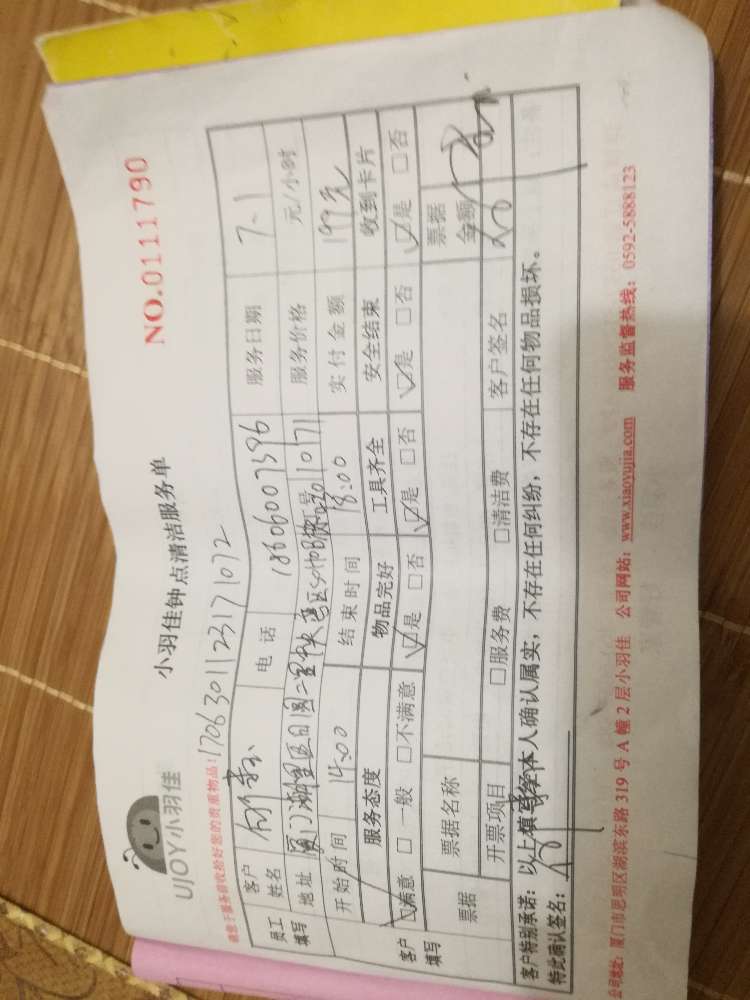 UJOY小羽佳
小羽佳钟点清洁服务单
NO.0111790
请您于服务前收拾好您的贵重物品!
1706301123171072
员工填写
客户姓名
电话 18606007596
服务日期 7.1
地址
服务价格 元/小时
开始时间 14:00
结束时间 18:00
实付金额 199元
客户填写
服务态度 物品完好 工具齐全 安全结束 收到卡片
☑满意 □一般 □不满意 ☑是 □否 ☑是 □否 ☑是 □否 ☑是 □否
票据
票据名称
票据金额
开票项目 □服务费 □清洁费
客户签名
客户特别承诺:以上填写经本人确认属实,不存在任何纠纷,不存在任何物品损坏。
特此确认签名:
公司地址:厦门市思明区湖滨东路319号A幢2层小羽佳 公司网站:www.xiaoyujia.com 服务监督热线:0592-5888123